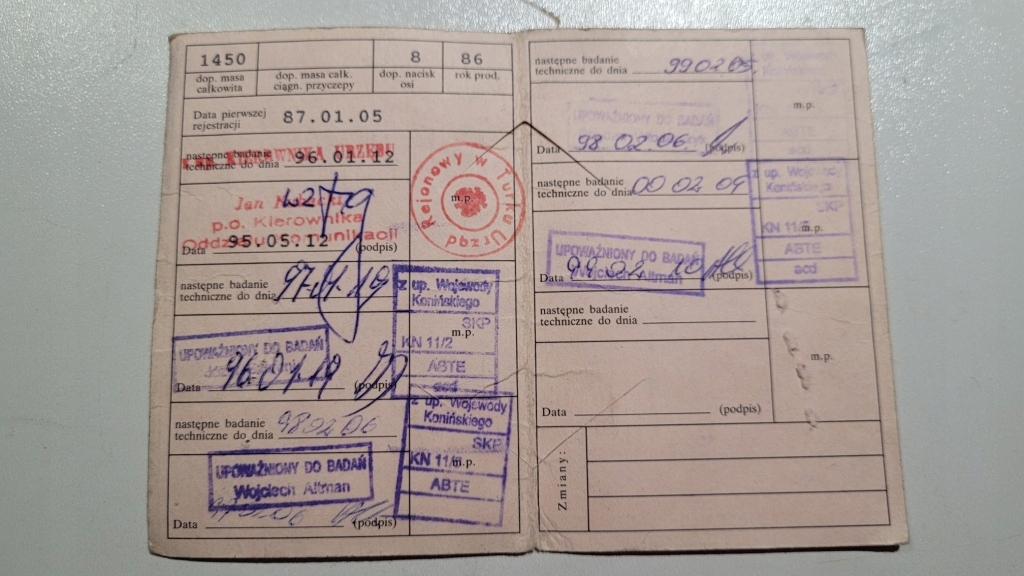 1450 8 86
dop. masa całkowita
dop. masa całk. ciągn. przyczepy
dop. nacisk osi
rok prod.
Data pierwszej rejestracji 87.01.05
KIEROWNIKA URZĘDU
następne badanie
techniczne do dnia 96.01.12
Jan
p.o. Kierownika
Oddziału Komunikacji
Data 95.05.12 (podpis)
m.p.
Rejonowy w Turku Urząd
następne badanie
techniczne do dnia 97.01.19
z up. Wojewody
Konińskiego
SKP
KN 11/2 m.p.
ABTE
acd
UPOWAŻNIONY DO BADAŃ
Data 96.01.19 (podpis)
następne badanie
techniczne do dnia 98 02 06
z up. Wojewody
Konińskiego
SKP
KN 11/ m.p.
ABTE
UPOWAŻNIONY DO BADAŃ
Wojciech Altman
Data (podpis)
następne badanie
techniczne do dnia 99 02 05
m.p.
ABTE
acd
UPOWAŻNIONY DO BADAŃ
Data 98.02.06. (podpis)
następne badanie
techniczne do dnia 00 02 09
z up. Wojewody
Konińskiego
SKP
KN 11/ m.p.
ABTE
acd
UPOWAŻNIONY DO BADAŃ
Wojciech Altman
Data 99.02. (podpis)
następne badanie
techniczne do dnia
m.p.
Data (podpis)
Zmiany: